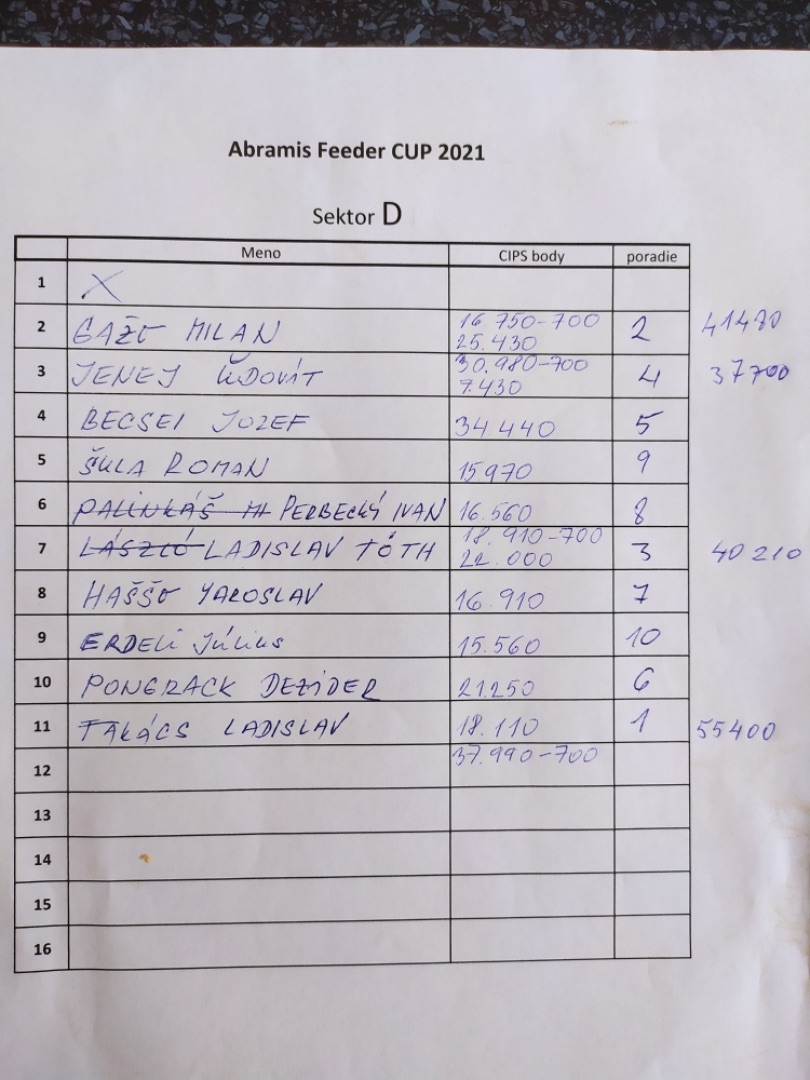 Abramis Feeder CUP 2021
Sektor D
Meno CIPS body poradie
1 X
2 GAŽO MILAN 16 750-700 25.430 2 41480
3 JENEJ ĽUDOVÍT 30.980-700 7.430 4 37700
4 BECSEI JOZEF 34 440 5
5 ŠULA ROMAN 15970 9
6 PALINKÁŠ MI PERBECKÝ IVAN 16.560 8
7 LÁSZLÓ LADISLAV TÓTH 18.910-700 22.000 3 40210
8 HAŠŠO YAROSLAV 16.910 7
9 ERDELI Július 15.560 10
10 PONGRACK DEZIDER 21.250 6
11 TAKÁCS LADISLAV 18.110 1 55400
12 37.990-700
13
14
15
16